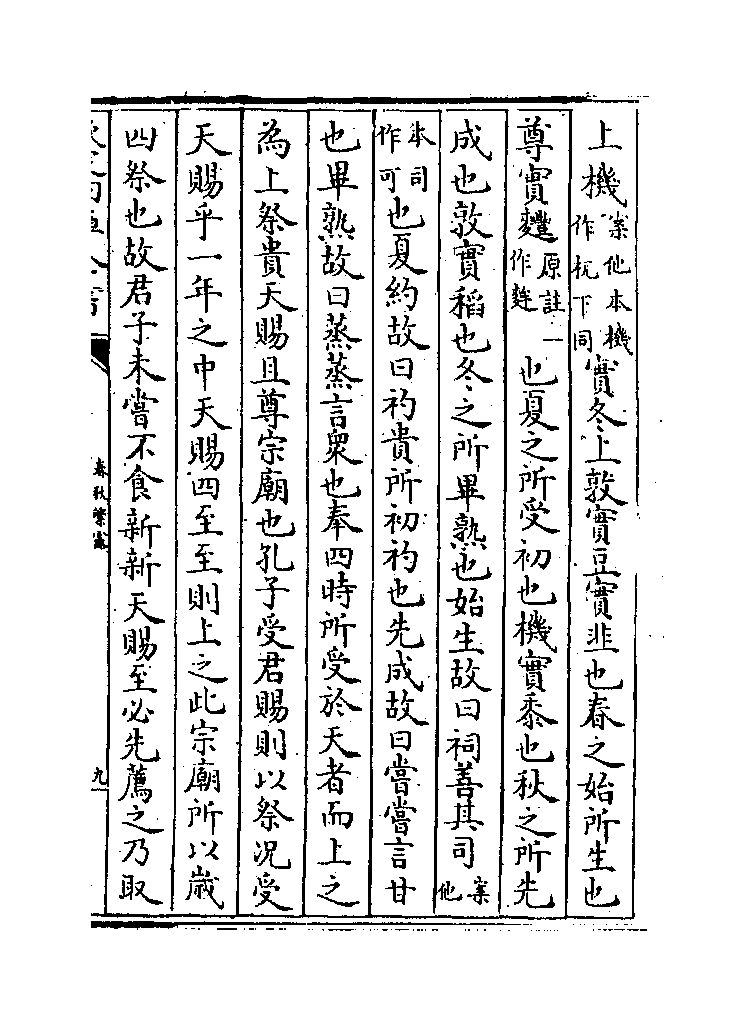 上機案他本機作杌下同實冬上敦實豆實韭也春之始所生也
尊實𪍿原註一作𪍿也夏之所受初也機實黍也秋之所先
成也敦實稻也冬之所畢熟也始生故曰祠善其司案他
本司作可也夏約故曰礿貴所初礿也先成故曰嘗嘗言甘
也畢熟故曰蒸蒸言衆也奉四時所受於天者而上之
為上祭貴天賜且尊宗廟也孔子受君賜則以祭况受
天賜乎一年之中天賜四至至則上之此宗廟所以歳
四祭也故君子未嘗不食新新天賜至必先薦之乃取
春秋繁露
九